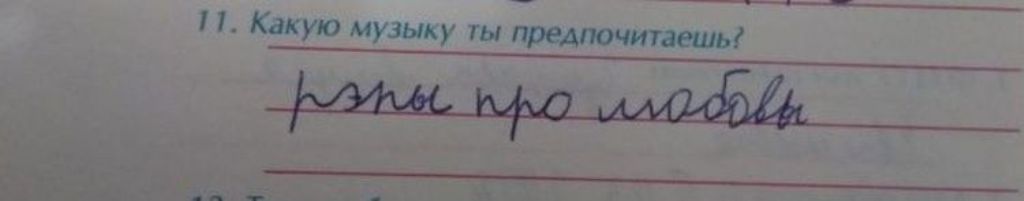 11. Какую музыку ты предпочитаешь?
рэпы про любовы